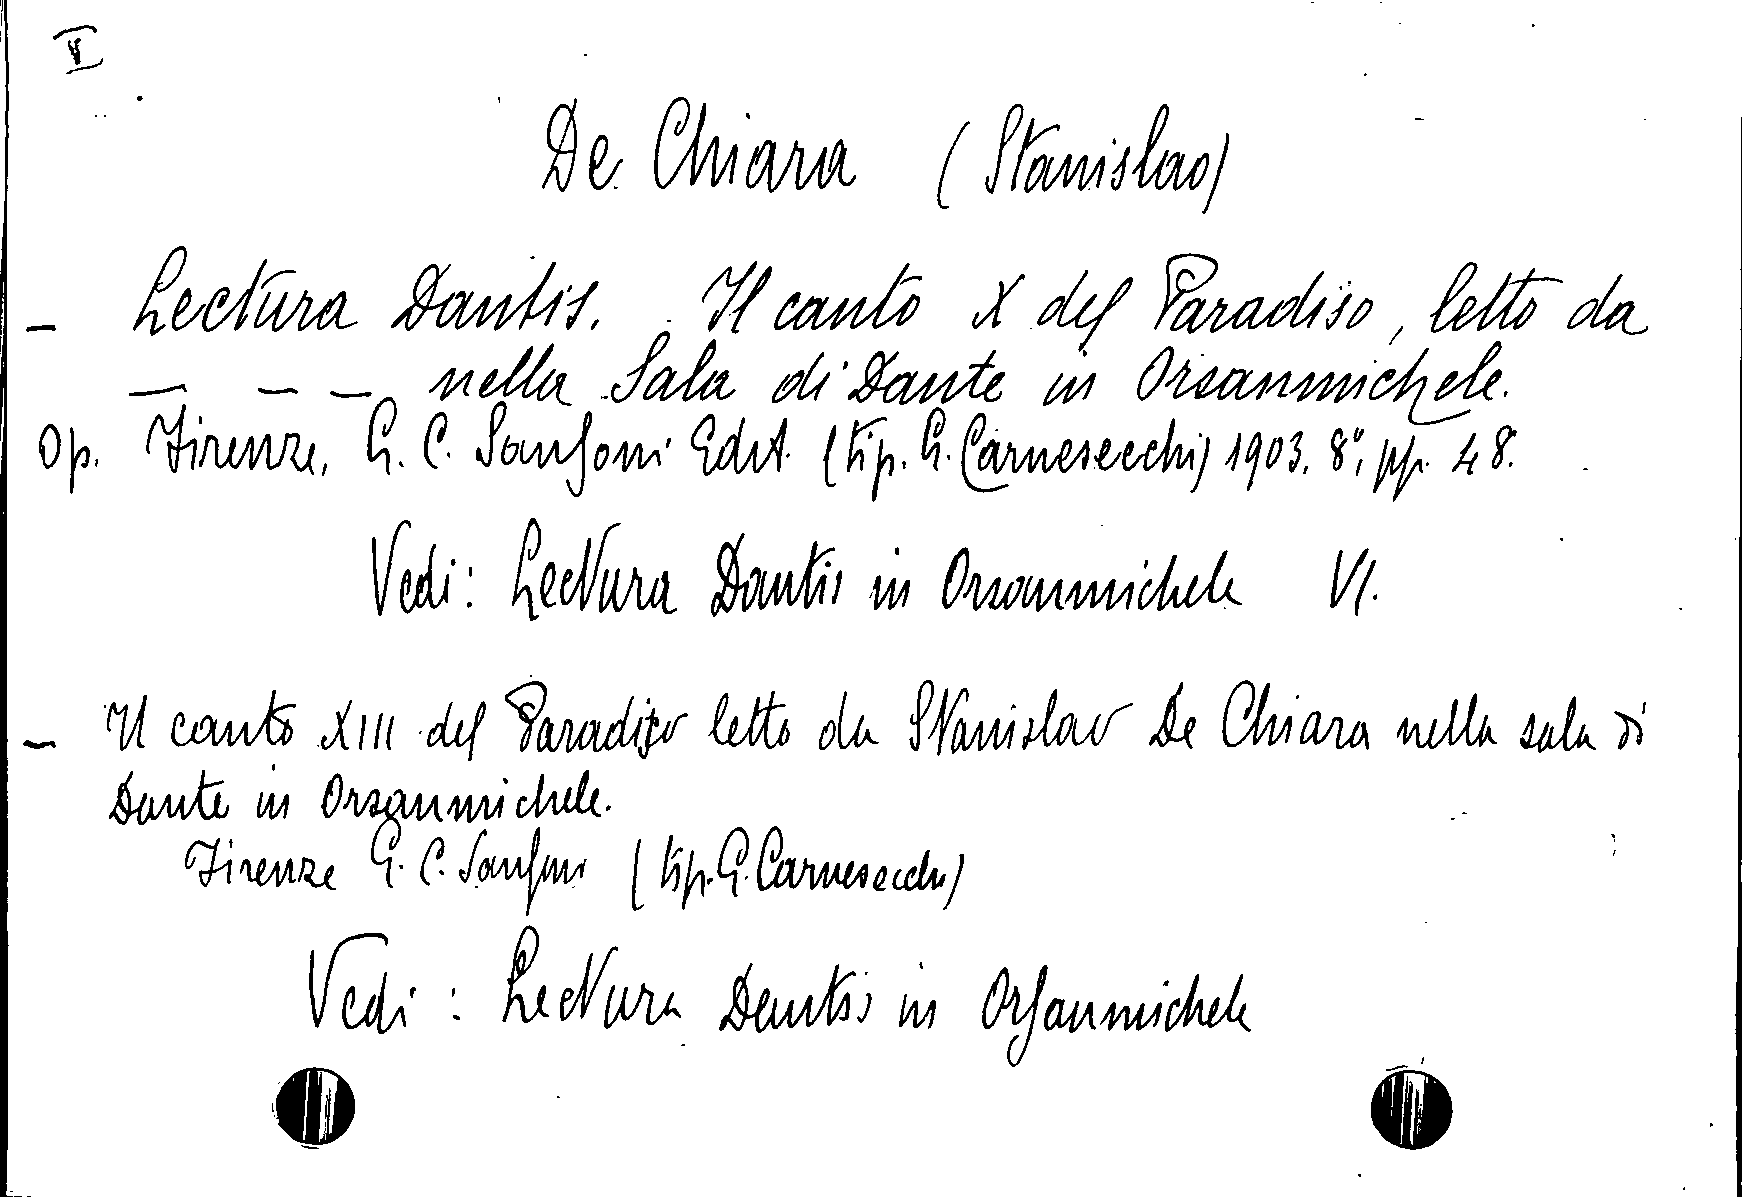 V
De Chiara (Stanislao)
- Lectura Dantis. Il canto X del Paradiso, letto da
— — — nella Sala di Dante in Orsanmichele.
Op. Firenze, G. C. Sansoni Edit. (tip. G. Carnesecchi) 1903. 8°, pp. 48.
Vedi: Lectura Dantis in Orsanmichele VI.
- Il canto XIII del Paradiso letto da Stanislao De Chiara nella sala di
Dante in Orsanmichele.
Firenze G. C. Sansoni (tip. G. Carnesecchi)
Vedi: Lectura Dantis in Orsanmichele